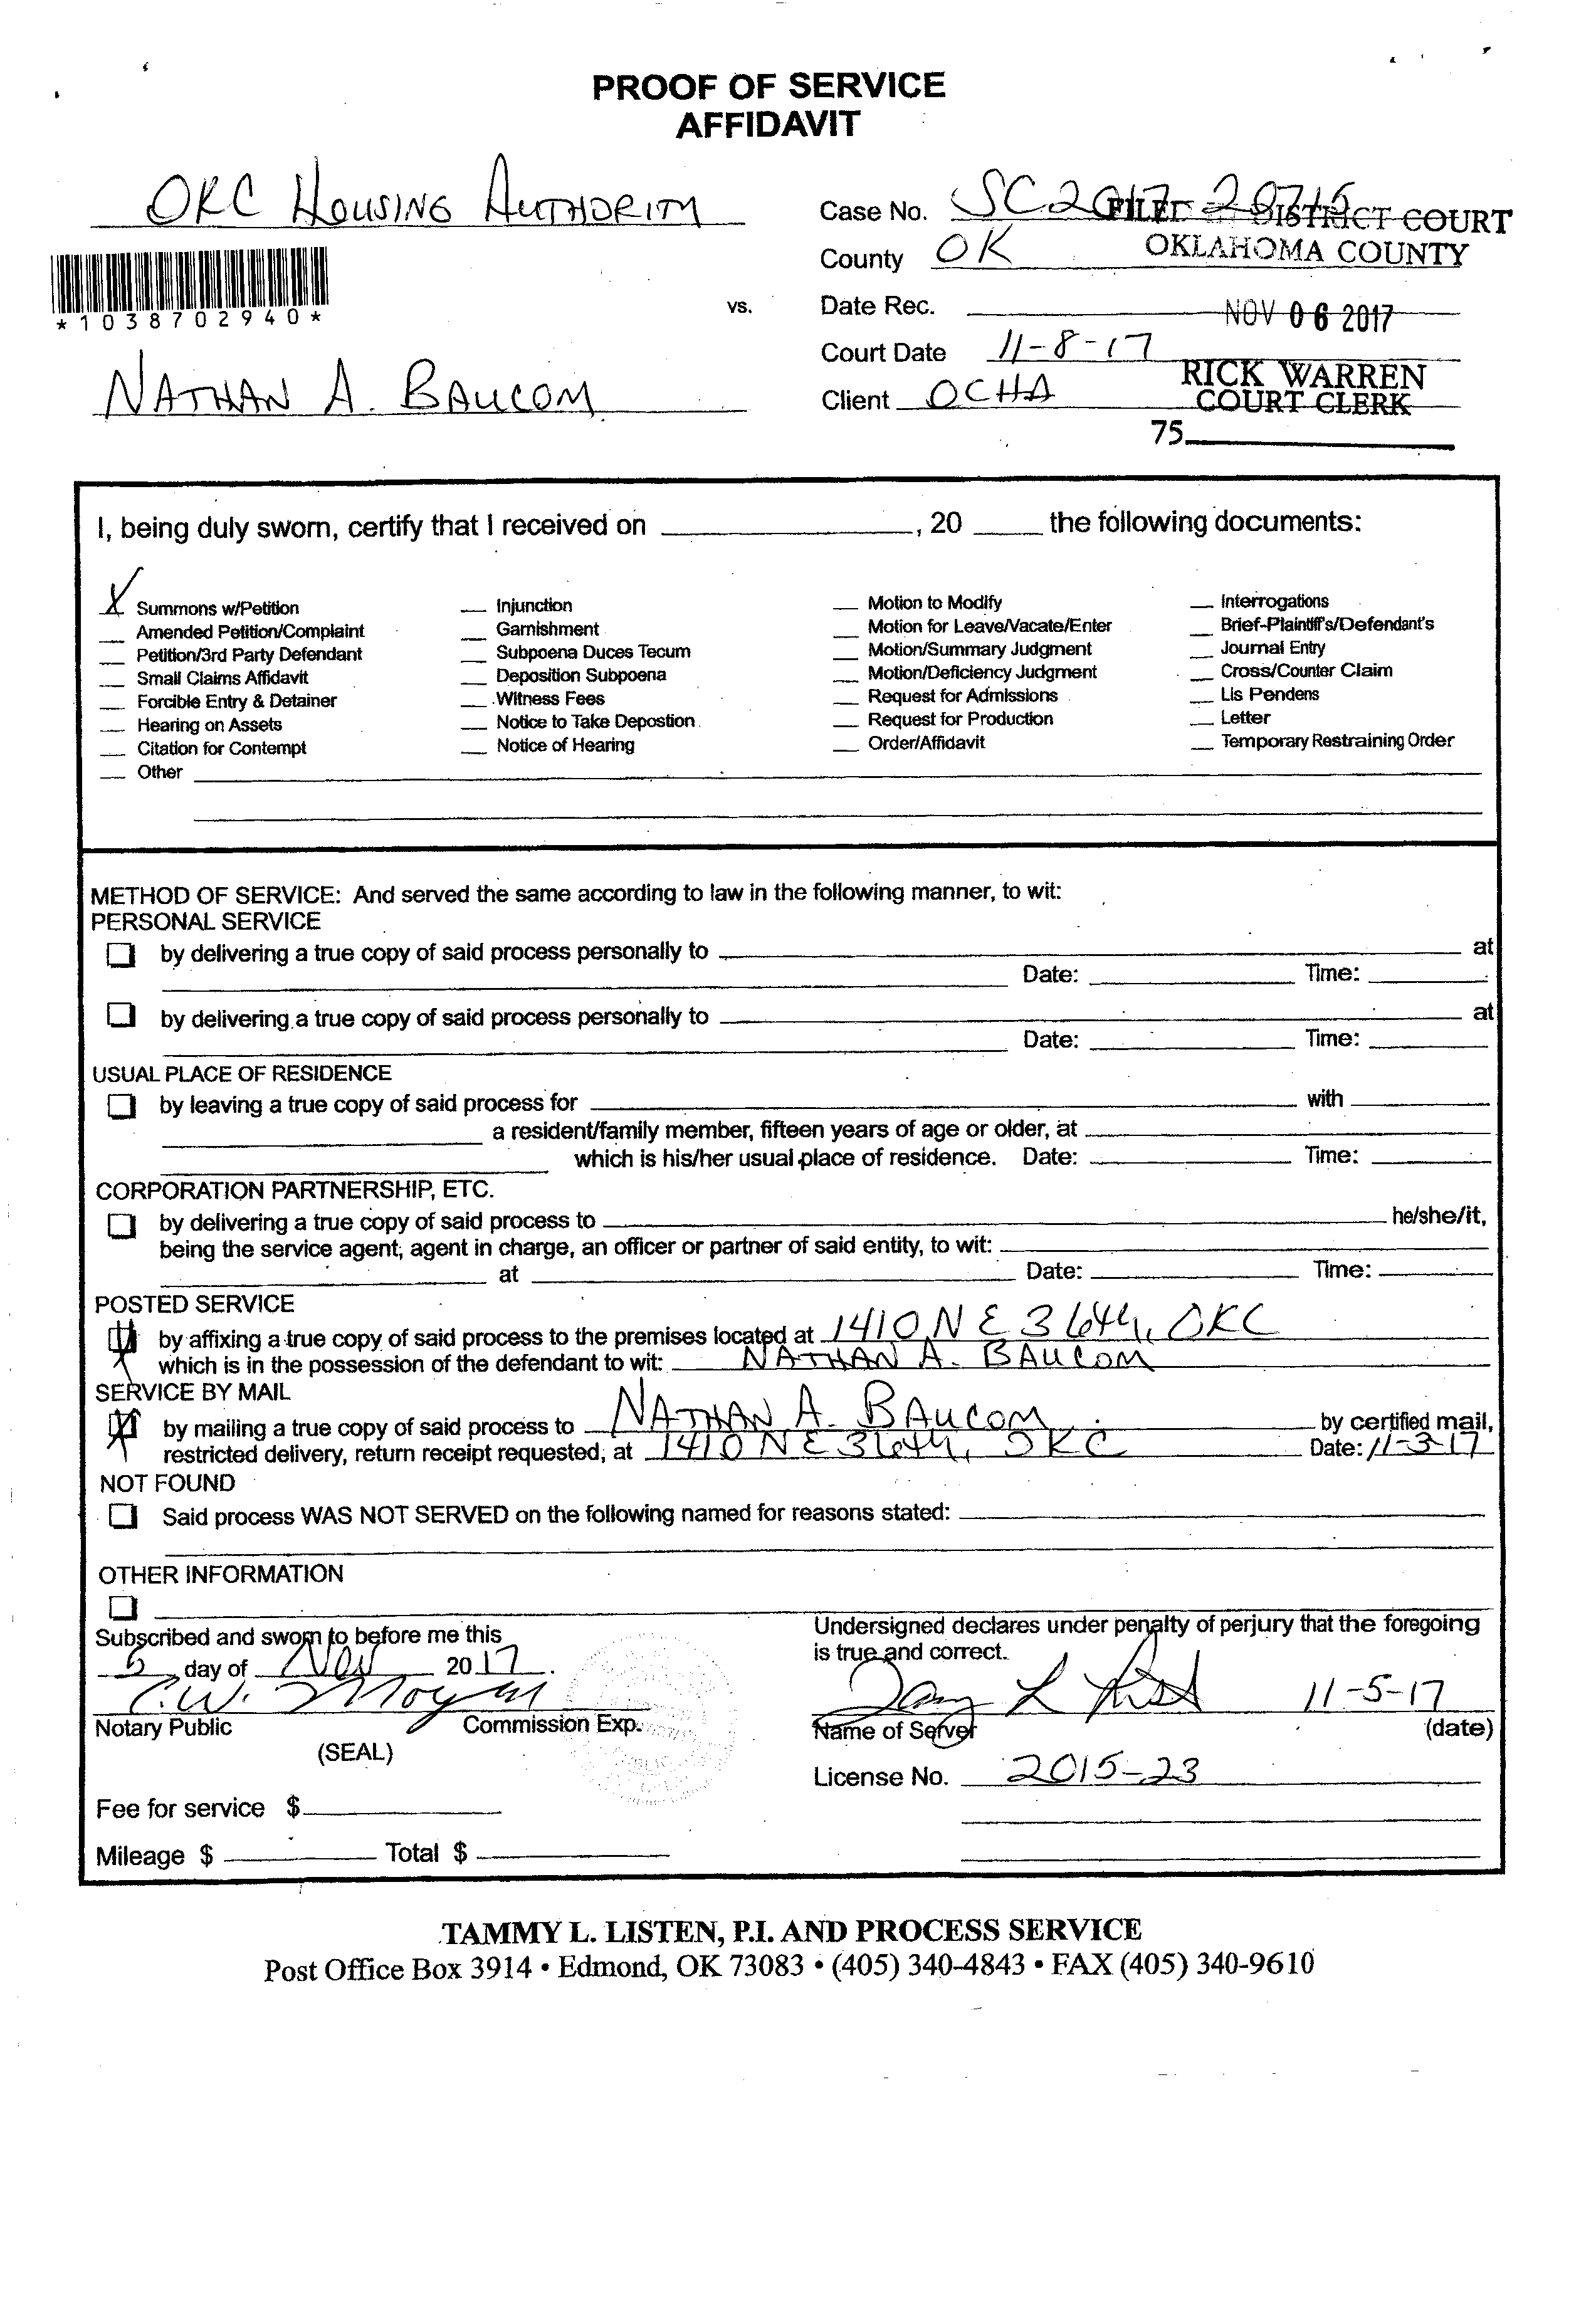 PROOF OF SERVICE
AFFIDAVIT
OKC HOUSING AUTHORITY
Case No. SC2017-20715
FILED DISTRICT COURT
OKLAHOMA COUNTY
County OK
*1038702940*
vs.
Date Rec.
NOV 06 2017
Court Date 11-8-17
NATHAN A. BAUCOM
Client OCHA
RICK WARREN
COURT CLERK
75
I, being duly sworn, certify that I received on , 20 the following documents:
X Summons w/Petition
Amended Petition/Complaint
Petition/3rd Party Defendant
Small Claims Affidavit
Forcible Entry & Detainer
Hearing on Assets
Citation for Contempt
Other
Injunction
Garnishment
Subpoena Duces Tecum
Deposition Subpoena
Witness Fees
Notice to Take Depostion
Notice of Hearing
Motion to Modify
Motion for Leave/Vacate/Enter
Motion/Summary Judgment
Motion/Deficiency Judgment
Request for Admissions
Request for Production
Order/Affidavit
Interrogations
Brief-Plaintiff's/Defendant's
Journal Entry
Cross/Counter Claim
Lis Pendens
Letter
Temporary Restraining Order
METHOD OF SERVICE: And served the same according to law in the following manner, to wit:
PERSONAL SERVICE
by delivering a true copy of said process personally to at
Date: Time:
by delivering a true copy of said process personally to at
Date: Time:
USUAL PLACE OF RESIDENCE
by leaving a true copy of said process for with
a resident/family member, fifteen years of age or older, at
which is his/her usual place of residence. Date: Time:
CORPORATION PARTNERSHIP, ETC.
by delivering a true copy of said process to he/she/it,
being the service agent, agent in charge, an officer or partner of said entity, to wit:
at Date: Time:
POSTED SERVICE
by affixing a true copy of said process to the premises located at 1410 NE 36th, OKC
which is in the possession of the defendant to wit: NATHAN A. BAUCOM
SERVICE BY MAIL
by mailing a true copy of said process to NATHAN A. BAUCOM by certified mail,
restricted delivery, return receipt requested, at 1410 NE 36th, OKC Date: 11-3-17
NOT FOUND
Said process WAS NOT SERVED on the following named for reasons stated:
OTHER INFORMATION
Subscribed and sworn to before me this
5 day of Nov 2017.
Notary Public Commission Exp.
(SEAL)
Fee for service $
Mileage $ Total $
Undersigned declares under penalty of perjury that the foregoing
is true and correct.
11-5-17
Name of Server (date)
License No. 2015-23
TAMMY L. LISTEN, P.I. AND PROCESS SERVICE
Post Office Box 3914 • Edmond, OK 73083 • (405) 340-4843 • FAX (405) 340-9610